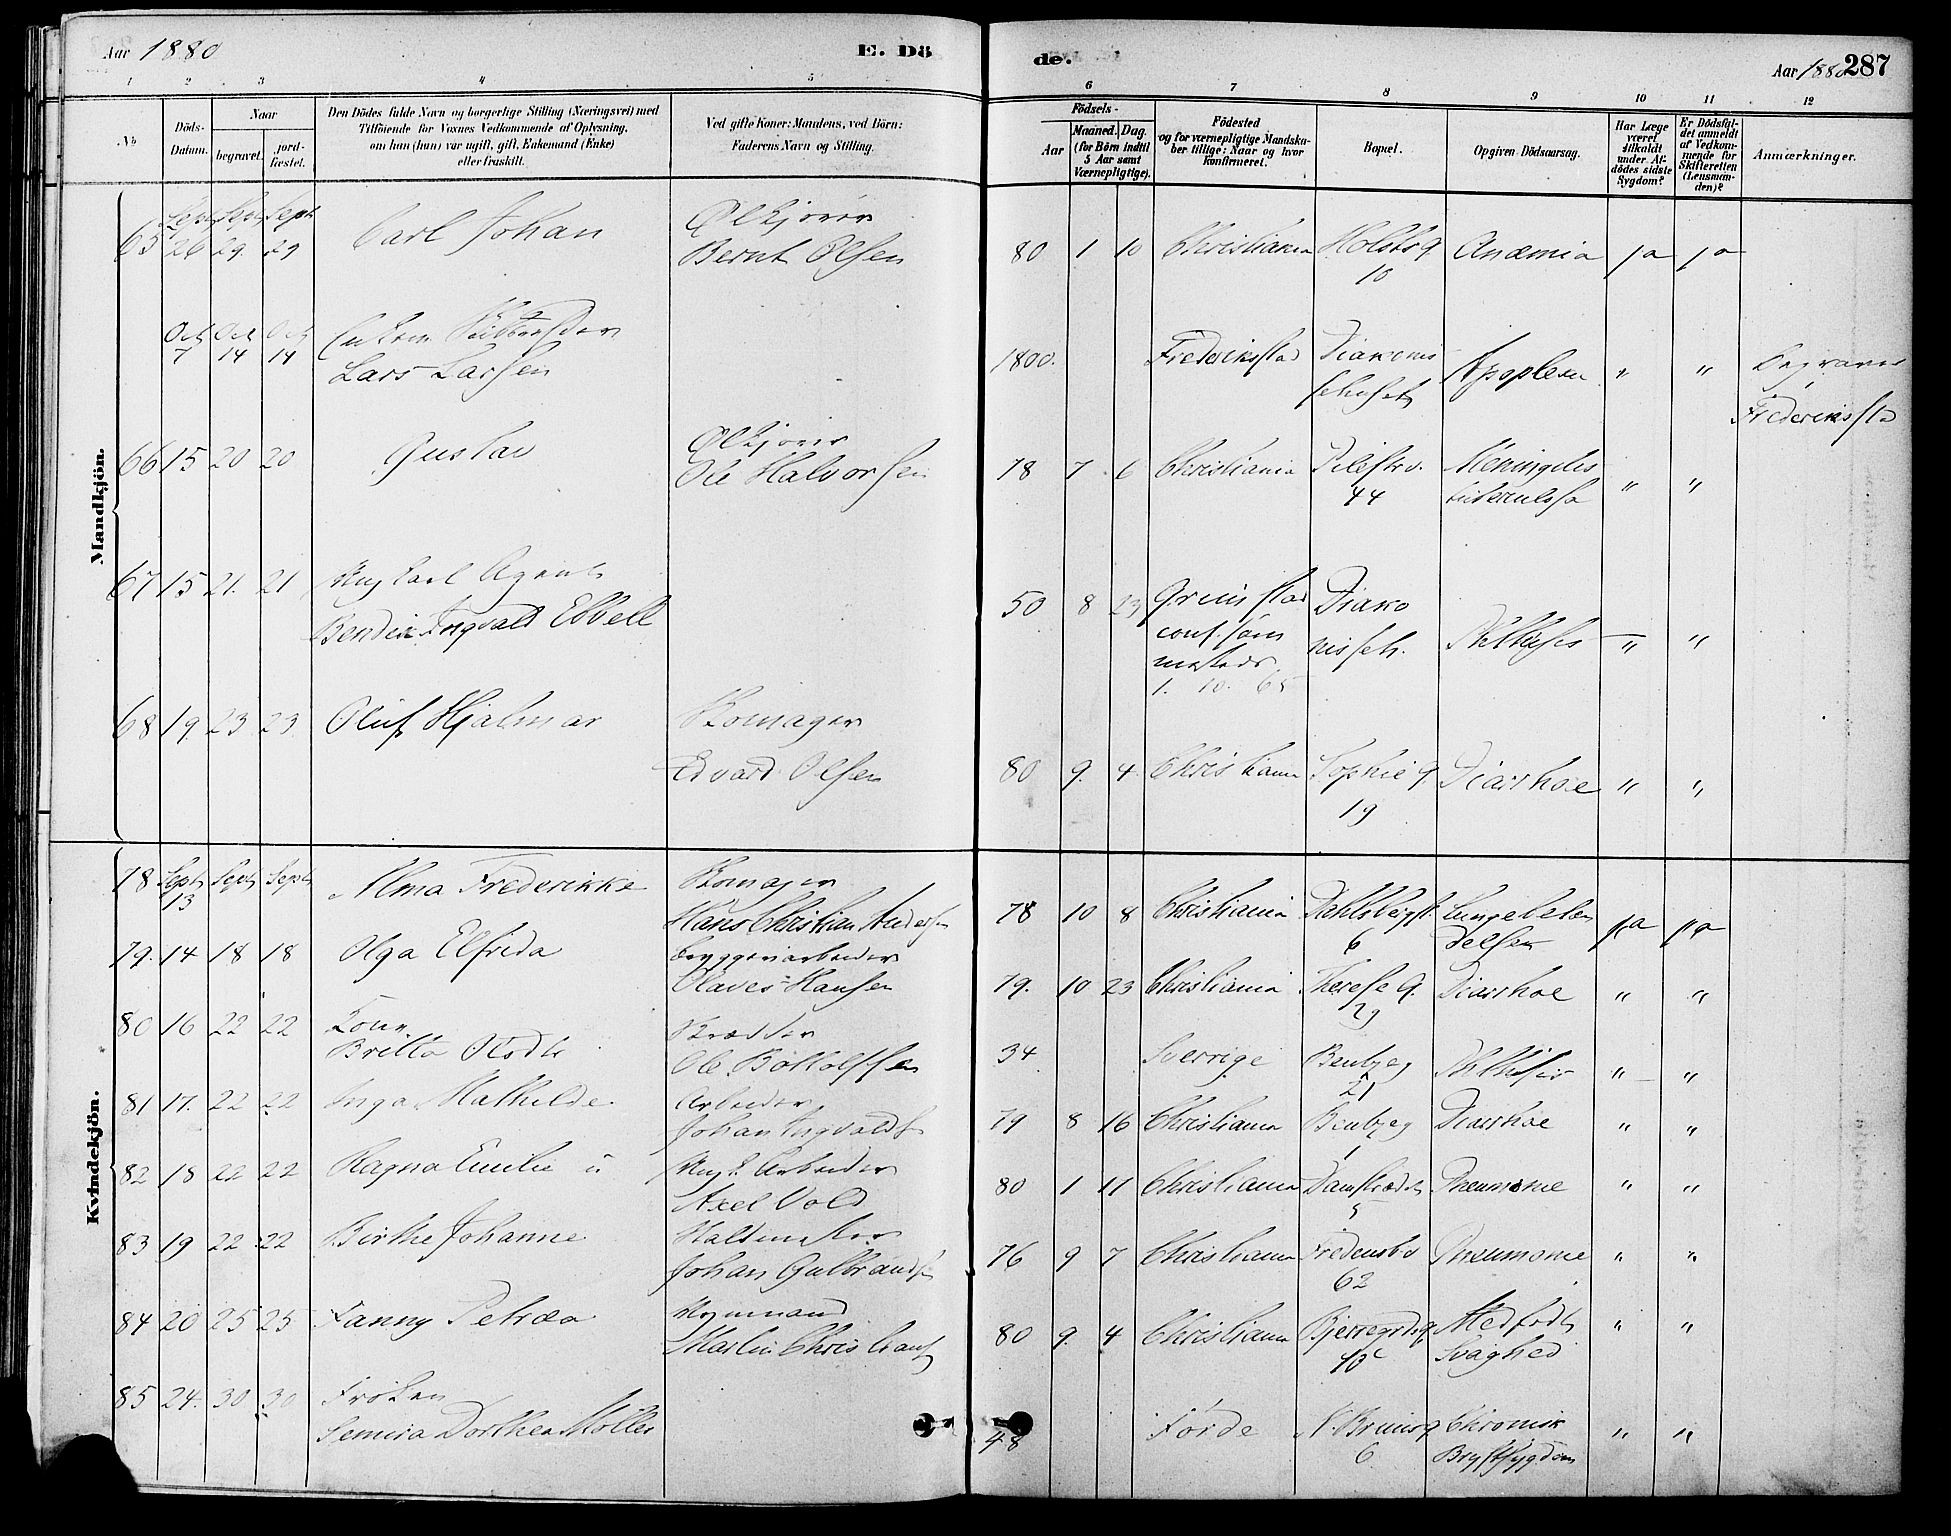 Aar 1880
E. Dö
de.
Aar 1880
287
1 2 3 4 5
6 7 8 9 10 11 12
No
Döds-
Datum.
Naar
begravet.
jord-
fæstet.
Den Dödes fulde Navn og borgerlige Stilling (Næringsvei) med
Tilföiende for Voxnes Vedkommende af Oplysning,
om han (hun) var ugift, gift, Enkemand (Enke)
eller fraskilt.
Ved gifte Koner: Mandens, ved Börn:
Faderens Navn og Stilling.
Födsels-
Aar
Maaned.
Dag.
(for Börn indtil
5 Aar samt
Værnepligtige).
Födested
og for værnepligtige Mandska-
ber tillige: Naar og hvor
konfirmeret.
Bopæl.
Opgiven Dödsaarsag.
Har Læge
været
tilkaldt
under Af-
dödes sidste
Sygdom?
Er Dödsfal-
det anmeldt
af Vedkom-
mende for
Skifteretten
(Lensman-
den)?
Anmærkninger.
Mandkjön.
Sept Sept Sept
65 26 29. 29 Carl Johan Ølkjører
Bernt Olsen
80 1 10 Christiania Holstsg
10
Anæmia ja ja
Oct Oct Oct
7 14 14
Lars Larsen
1800. Frederiksstad Diakonis
sehuset
Apoplexi " " Begraves
i
Frederikssta
66 15 20 20 Gustav Ølkjører
Ole Halvorsen
78 7 6 Christiania Pilestr.
44
Meningitis
tuberculosa
" "
67 15 21. 21 Agent
Bendix Ingvald Ebbell
50 8 23 Grimstad
conf.
1. 10. 65
Diako
nisseh.
Phthisis " "
68 19 23 23. Oluf Hjalmar Skomager
Edvard Olsen
80 9. 4 Christiania Sophieg.
19
Diarrhoe " "
Kvindekjön.
78 Sept Sept Sept
13
Alma Frederikke Skomager
Hans Christian Andersen
78 10 8 Christiania Dahlsbergst.
6
Lungebetæn
delse
ja ja
79. 14 18 18 Olga Elfrida Bryggeriarbeider
Olaves Hansen
79. 10 23 Christiania Therese g.
29
Diarrhoe " "
80 16 22 22 Kone
Britta Olsdt.
Skrædder
Ole Botholfsen
34 Sverrige
21
Phthisis " "
81 17. 22 22 Inga Mathilde Arbeider
Johan Ingvalds
79 8 16 Christiania
1
Diarrhoe " "
82 18 22 22 Ragna Emilie u Arbeider
Axel Vold
80 1 11 Christiania Damstrædet
5
Pneumonie " "
83 19 22 22 Birthe Johanne
Johan Gulbrands
76 9 7 Christiania Fredensb v
62
Pneumonie " "
84 20 25 25 Fanny Petræa
Martin Christians
80 9. 4 Christiania Bjerregrdsg
10 c
Medfødt
Svaghed
" "
85 24. 30 30 Frøken
Semina Dorthea Møller
48 Førde N. Brunsg
6
Chronisk
Brystsygdom
" "